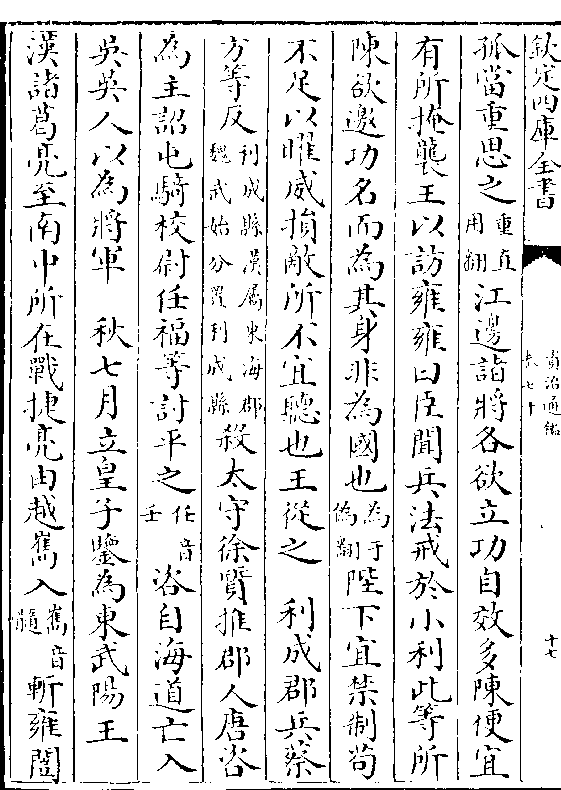 欽定四庫全書
資治通鑑
卷七十
十七
孤當重思之重直用翻江邊諸將各欲立功自效多陳便宜
有所掩襲王以訪雍雍曰臣聞兵法戒於小利此等所
陳欲邀功名而為其身非為國也為于偽翻陛下宜禁制苟
不足以曜威損敵所不宜聽也王從之 利成郡兵蔡
方等反利成縣漢屬東海郡魏武始分置利成縣殺太守徐質推郡人唐咨
為主詔屯騎校尉任福等討平之任音壬咨自海道亡入
吳吳人以為將軍 秋七月立皇子鑒為東武陽王
漢諸葛亮至南中所在戰捷亮由越嶲入嶲音髓斬雍闓